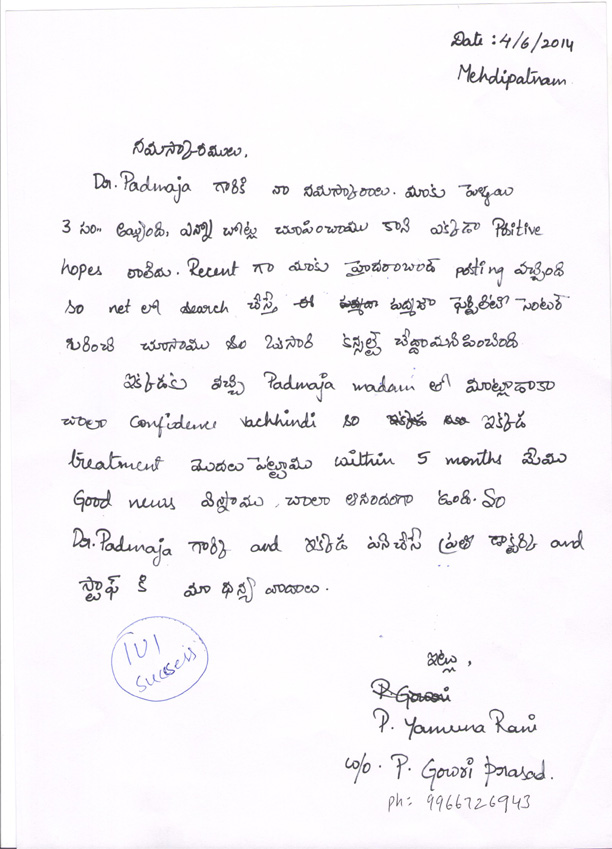 Date : 4/6/2014
Mehdipatnam
నమస్కారములు.
Dr. Padmaja గారికి నా నమస్కారాలు. మాకు పెళ్ళయి
3 సం.. అయ్యింది, ఎన్నో చోట్ల చూపించాము కాని ఎక్కడా Positive
hopes రాలేదు. Recent గా మాకు హైదరాబాద్ posting వచ్చింది
so net లో search చేస్తే ఈ పద్మజా ఫెర్టిలిటి సెంటర్
గురించి చూసాము so ఒసారి కన్సల్ట్ చేద్దామనిపించింది
ఇక్కడకు వచ్చి Padmaja madam తో మాట్లాడాకా
చాలా confidence vachhindi so ఇక్కడ
treatment మొదలు పెట్టాము within 5 months మేము
Good news విన్నాము, చాలా ఆనందంగా ఉంది. So
Dr. Padmaja గారికి and ఇక్కడ పనిచేసే ప్రతి డాక్టర్కి and
స్టాఫ్ కి మా ధన్య వాదాలు.
IUI
success
ఇట్లు,
P. Gowri
P. Yamuna Rani
w/o. P. Gowri prasad.
ph: 9966726943